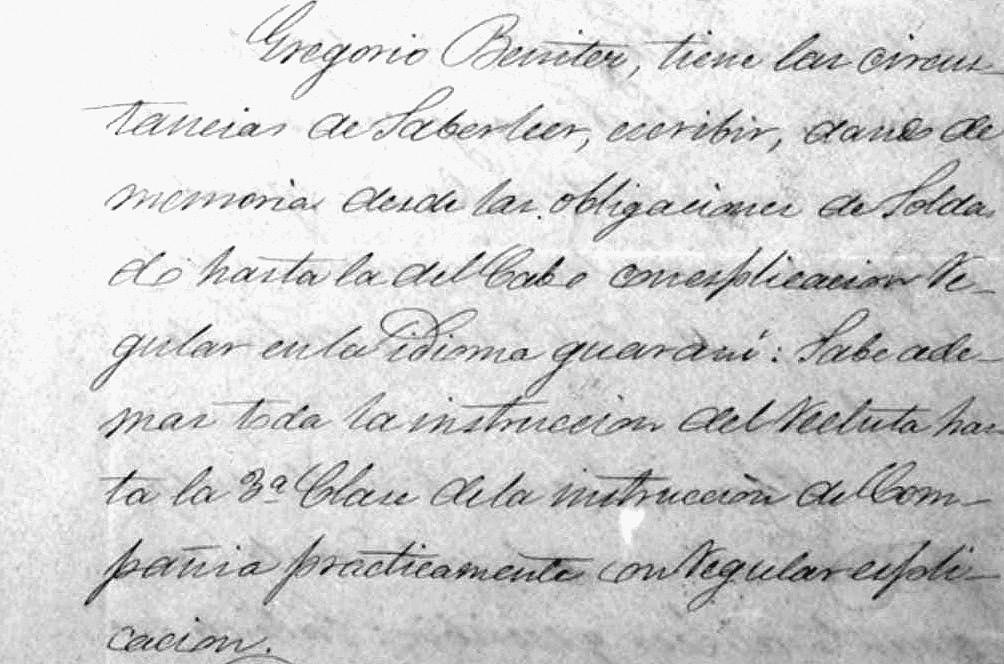 Gregorio Benitez, tiene las circuns-
tancias de Saber leer, escribir, dando de
memoria desde las obligaciones de Solda
do hasta la del Cabo con esplicacion Re-
gular en la idioma guaraní: Sabe ade-
mas toda la instruccion del Recluta has-
ta la 3ª Clase de la instruccion de Com-
pañia practicamente con Regular espli-
cacion.